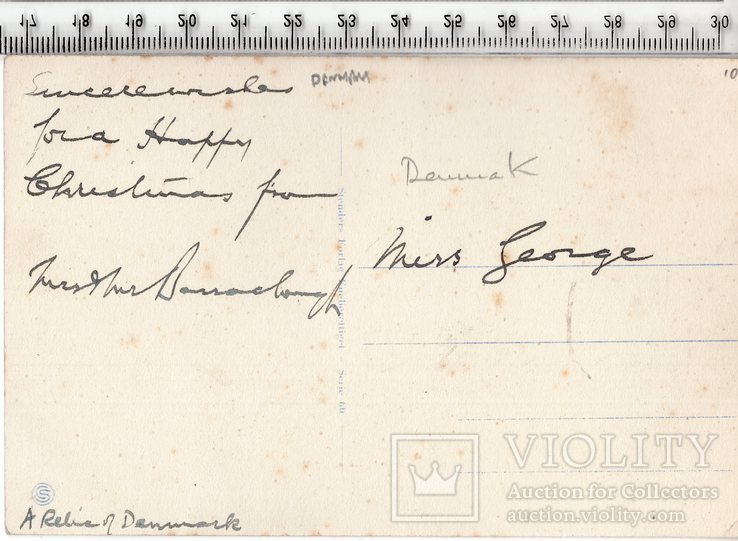 17 18 19 20 21 22 23 24 25 26 27 28 29 30
Sincere wishes
for a Happy
Christmas from
Mrs & Mr Barraclough
DENMARK
10
Denmak
Miss George
Stenders Forlag Eneberettiget Serie 60
S
A Relic of Denmark
VIOLITY
Auction for Collectors
auction.violity.com